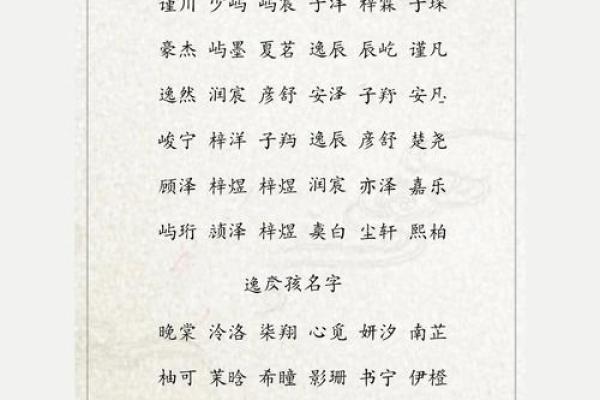 谨川 少屿 屿宸 子洋 梓霖 子琛
豪杰 屿墨 夏茗 逸辰 辰屹 谨凡
逸然 润宸 彦舒 安泽 安凡
峻宁 梓洋 逸辰 彦舒 楚尧
顾泽 梓煜 梓煜 润宸 亦泽 嘉乐
屿珩 梓煜 尘轩 熙柏
逸孩名字
晚棠 泠洛 柒翔 心觅 妍汐 南芷
柚可 茉晗 希瞳 影珊 书宁 伊橙